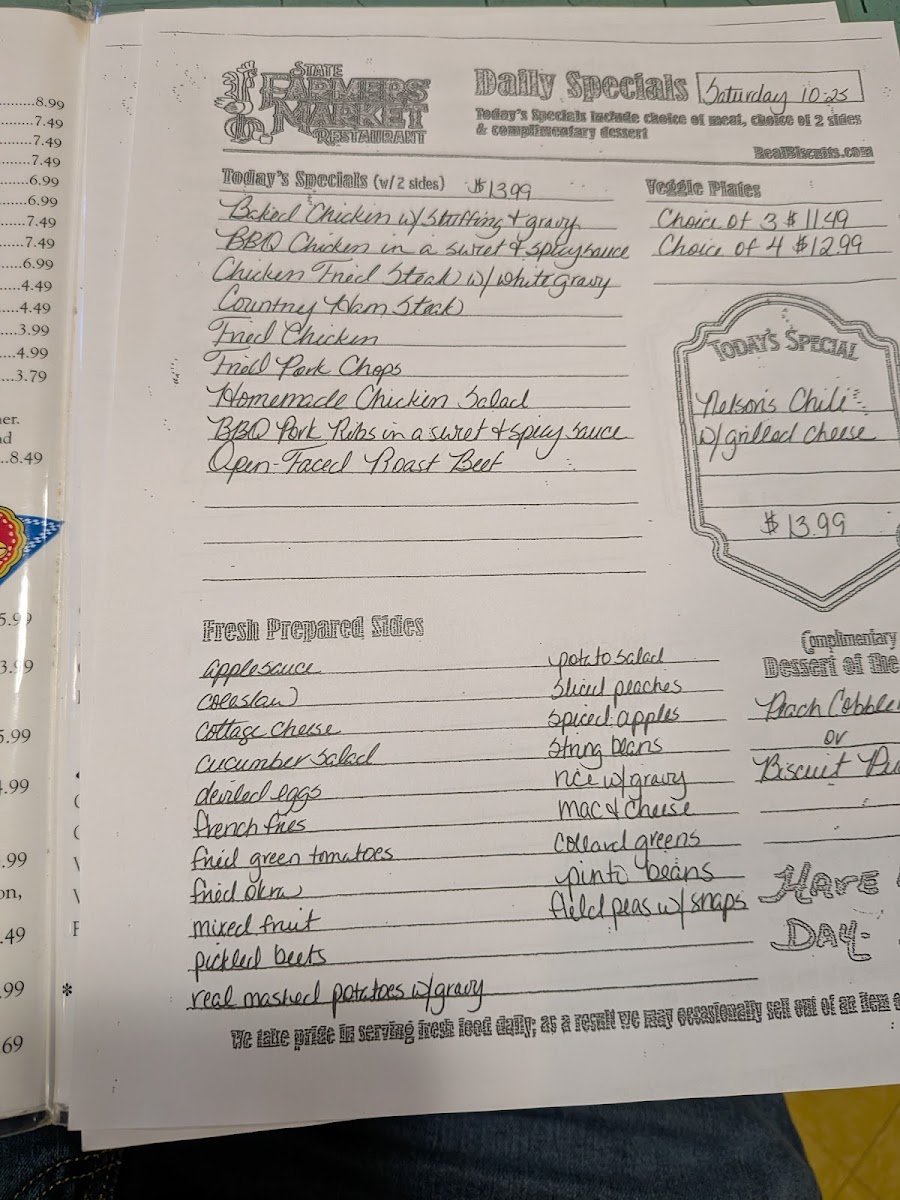 ........8.99
.......7.49
.......7.49
.......7.49
.......6.99
.......6.99
......7.49
......7.49
.....6.99
.....4.49
.....4.49
....3.99
....4.99
...3.79
..8.49
5.99
3.99
5.99
.99
.99
on,
.49
.99
69
*
STATE
FARMERS'
MARKET
RESTAURANT
Daily Specials
Saturday 10-25
Today's Specials include choice of meat, choice of 2 sides
& complimentary dessert
RealBiscuits.com
Today's Specials (w/2 sides) $13.99
Baked Chicken w/stuffing & gravy
BBQ Chicken in a sweet & spicy sauce
Chicken Fried Steak w/ white gravy
Country Ham Steak
Fried Chicken
Fried Pork Chops
Homemade Chicken Salad
BBQ Pork Ribs in a sweet & spicy sauce
Open-Faced Roast Beef
Veggie Plates
Choice of 3 $11.49
Choice of 4 $12.99
TODAY'S SPECIAL
Nelson's Chili
w/grilled cheese
$13.99
Fresh Prepared Sides
applesauce
coleslaw
cottage cheese
cucumber salad
deviled eggs
french fries
fried green tomatoes
fried okra
mixed fruit
pickled beets
real mashed potatoes w/gravy
potato salad
sliced peaches
spiced apples
string beans
rice w/gravy
mac & cheese
collard greens
pinto beans
field peas w/ snaps
Complimentary
Dessert of the
Peach Cobbler
or
Biscuit Pu
HAVE
DAY-
We take pride in serving fresh food daily; as a result we may occasionally sell out of an item